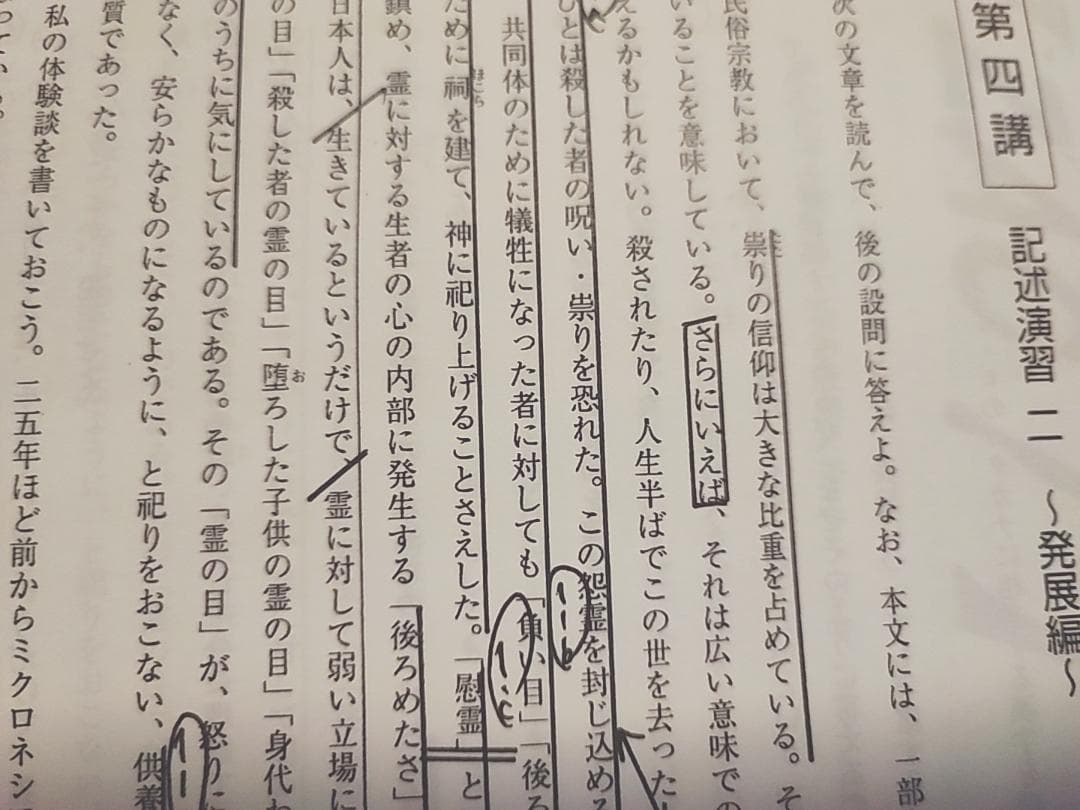 第四講
記述演習 二 ～発展編～
次の文章を読んで、後の設問に答えよ。なお、本文には、一部
民俗宗教において、祟りの信仰は大きな比重を占めている。そ
いることを意味している。さらにいえば、それは広い意味での
えるかもしれない。殺されたり、人生半ばでこの世を去った
ひとは殺した者の呪い・祟りを恐れた。この怨霊を封じ込める
共同体のために犠牲になった者に対しても「負い目」「後ろ
ために祠を建て、神に祀り上げることさえした。「慰霊」と
鎮め、霊に対する生者の心の内部に発生する「後ろめたさ」
日本人は、生きているというだけで、霊に対して弱い立場に
の目」「殺した者の霊の目」「堕ろした子供の霊の目」「身代わ
のうちに気にしているのである。その「霊の目」が、怒りに
なく、安らかなものになるように、と祀りをおこない、供養
質であった。
私の体験談を書いておこう。二五年ほど前からミクロネシ